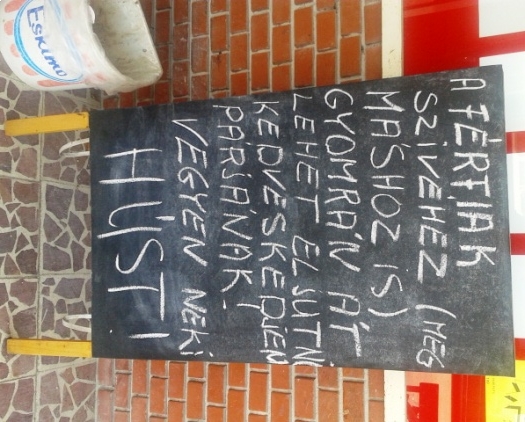 A FÉRFIAK
SZIVÉHEZ (MÉG
MÁSHOZ IS)
GYOMRÁN ÁT
LEHET ELJUTNI
KEDVESKEDJEN
PÁRJÁNAK.
VEGYEN NEKI
HÚST!
Eskimo